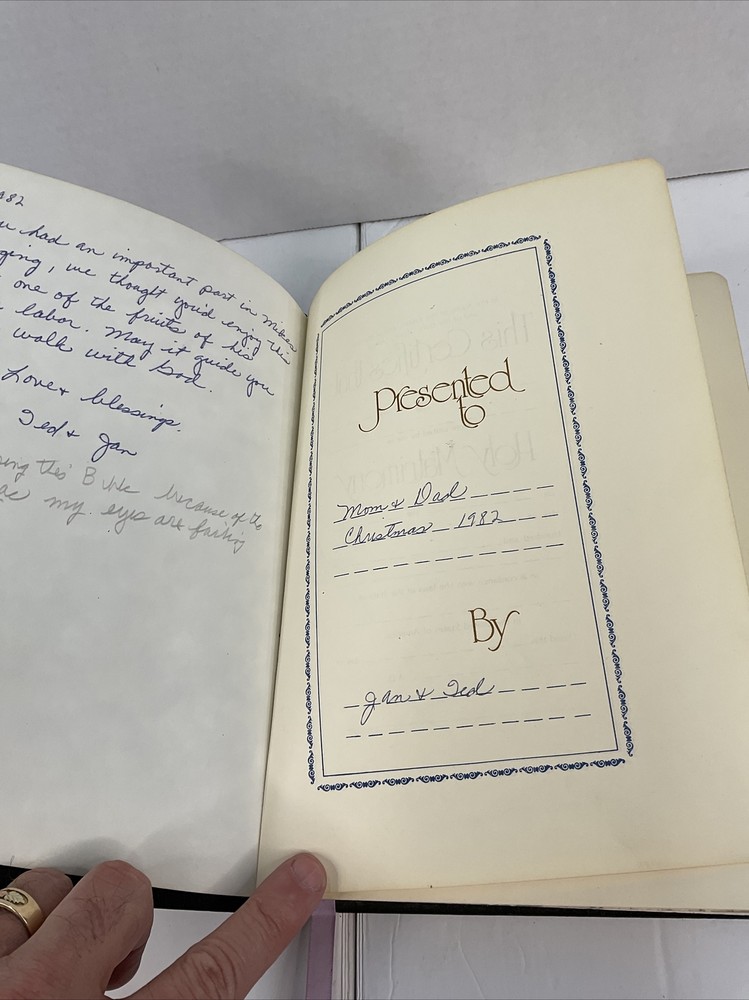 982
u had an important part in Mike's
ging, we thoght you'd enjoy this
one of the fruits of his
labor. May it guide you
walk with God.
Love & blessings.
Ted & Jan
ing this Bible because of the
as my eyes are failing
Presented
to
Mom & Dad
Christmas 1982
By
Jan & Ted
This Certificate
Holy Matrimony